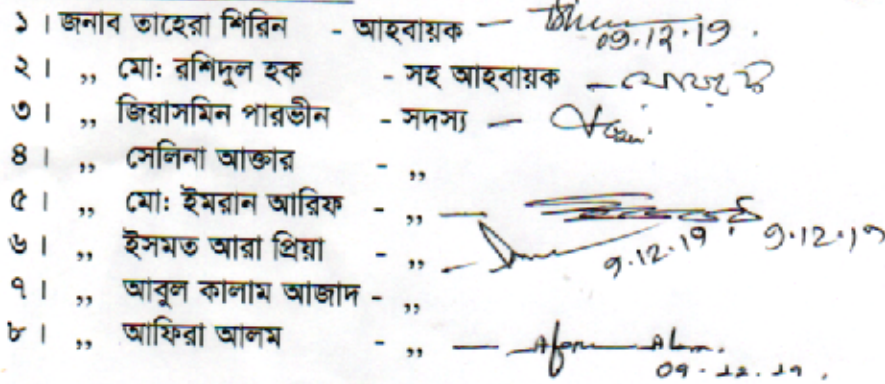 ১। জনাব তাহেরা শিরিন - আহবায়ক — 09.12.19.
২। ,, মো: রশিদুল হক - সহ আহবায়ক —
৩। ,, জিয়াসমিন পারভীন - সদস্য —
৪। ,, সেলিনা আক্তার - ,,
৫। ,, মো: ইমরান আরিফ - ,, — 9.12.19
৬। ,, ইসমত আরা প্রিয়া - ,, — 9.12.19
৭। ,, আবুল কালাম আজাদ - ,,
৮। ,, আফিরা আলম - ,, —